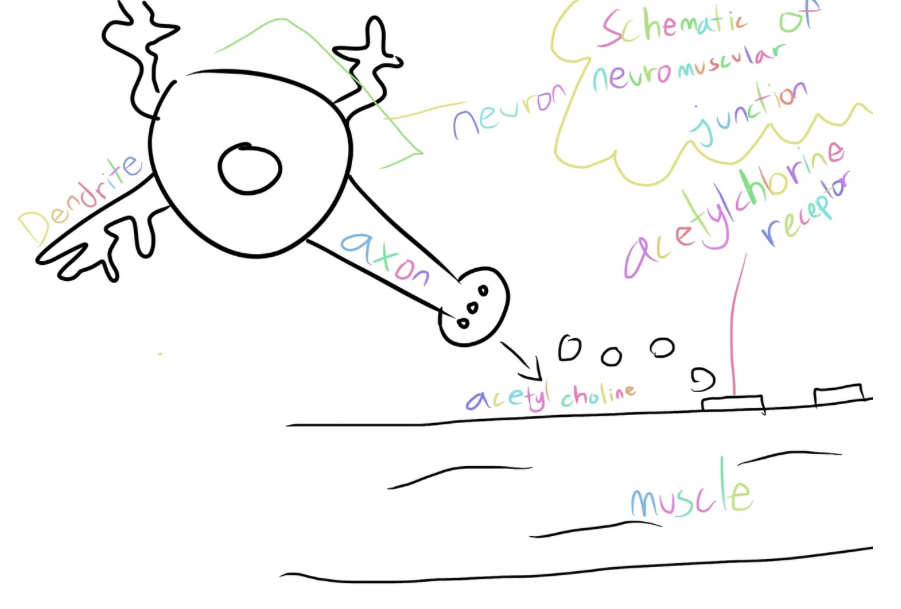 Schematic of
neuromuscular
junction
neuron
Dendrite
axon
acetylchlorine
receptor
acetyl choline
muscle